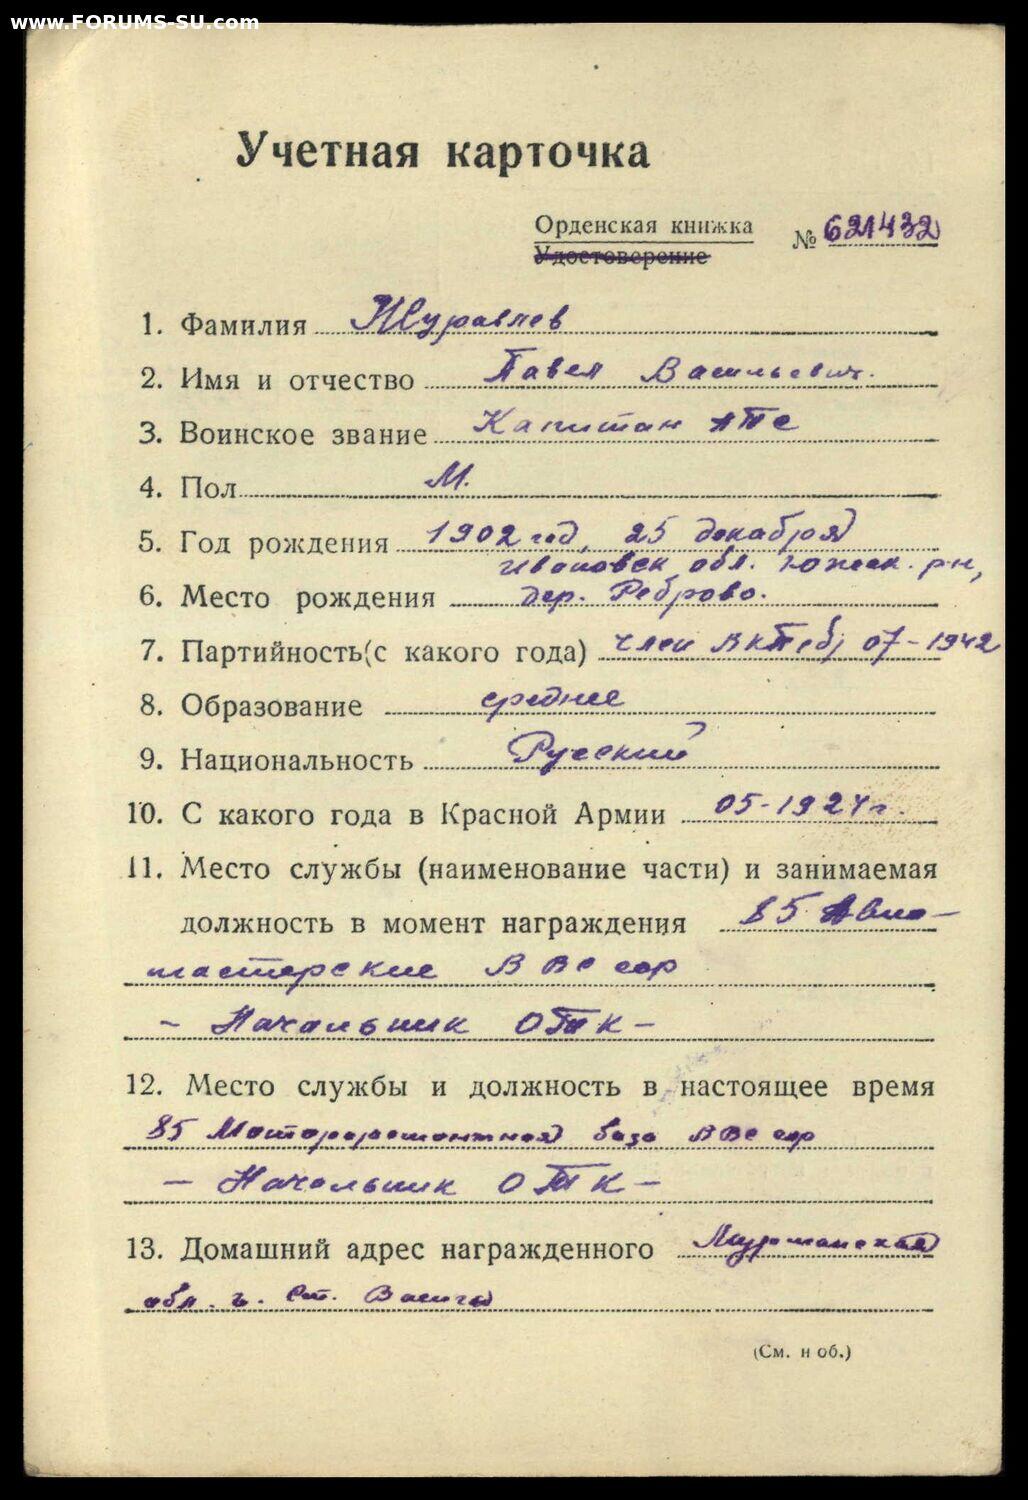 www.FORUMS-SU.com
Учетная карточка
Орденская книжка
Удостоверение
№ 621432
1. Фамилия Журавлев
2. Имя и отчество Павел Васильевич.
3. Воинское звание Капитан АТС
4. Пол М.
5. Год рождения 1902 год, 25 декабря
Ивановск обл. Южск. р-н,
6. Место рождения дер. Реброво.
7. Партийность (с какого года) член ВКП(б) 07-1942
8. Образование среднее
9. Национальность Русский
10. С какого года в Красной Армии 05-1924 г.
11. Место службы (наименование части) и занимаемая
должность в момент награждения 85 Авиа-
мастерские ВВС
- Начальник ОТК -
12. Место службы и должность в настоящее время
85 Мотороремонтная база ВВС
- Начальник ОТК -
13. Домашний адрес награжденного Мурманская
обл. Ст.
(См. н об.)